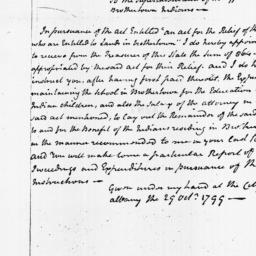 To the Superintendents of the
Brothertown Indians —
In pursuance of the Act Entitled "an act for the Relief of the
who are Entitled to Lands in Brothertown" I do hereby appoint
to receive from the Treasurer of this State the Sum of
appropriated by the said act for their Relief. And I do
instruct you, after having first paid thereout, the Expen
maintaining the School in Brothertown for the Education
Indian children, and also the Salary of the attorney in
said act mentioned, to lay out the Remainder of the said
to and for the Benefit of the Indians residing in Brother
in the manner recommended to me in your Last
and You will make to me a particular Report of
Proceedings and Expenditures in pursuance of th
Instructions —
Given under my hand at the Cit
albany the 29 Octr. 1799 —